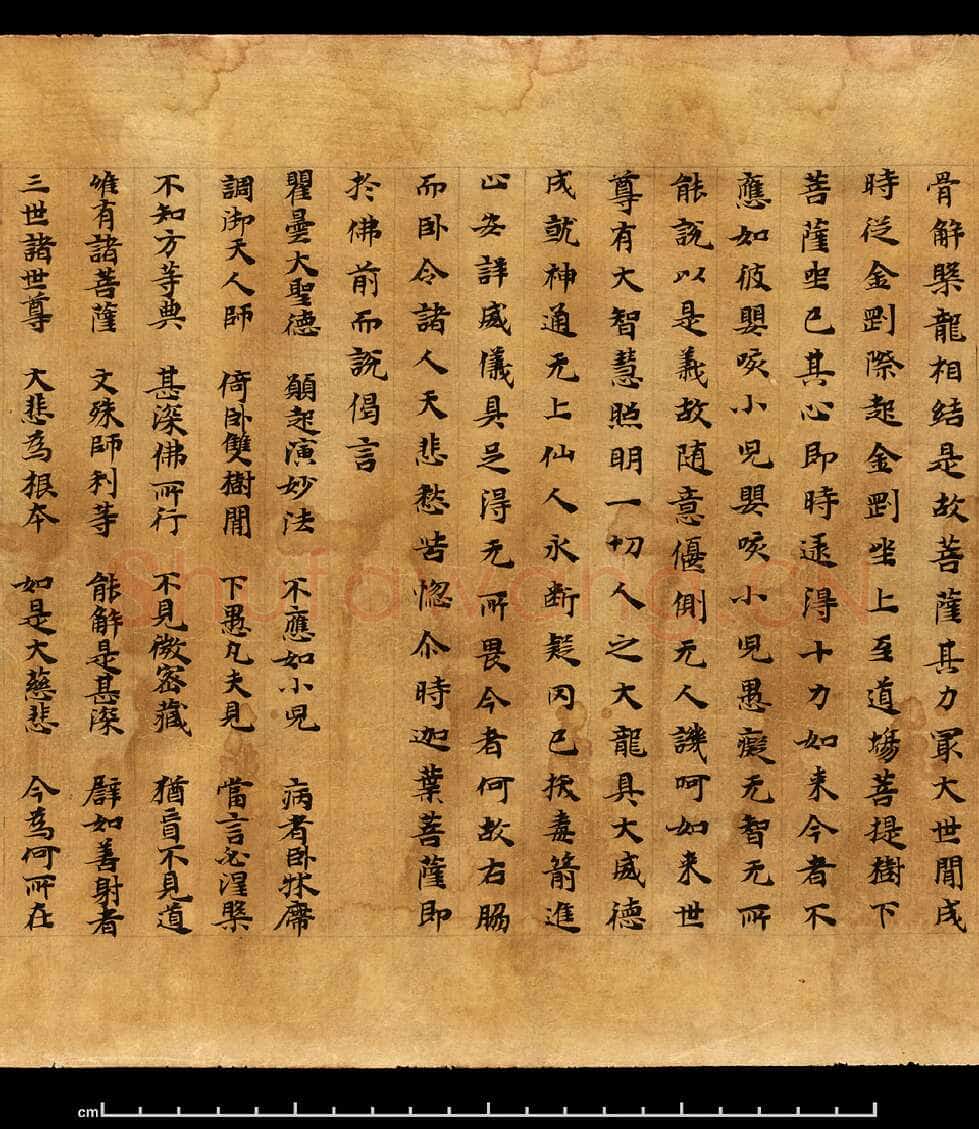 骨解槃龍相結是故菩薩其力冣大世間成
時從金剛際起金剛坐上至道場菩提樹下
菩薩坐已其心即時逮得十力如来今者不
應如彼嬰咳小兒嬰咳小兒愚癡无智无所
能說以是義故随意偃側无人譏呵如来世
尊有大智慧照明一切人之大龍具大威德
成就神通无上仙人永断疑罔已拔毒箭進
止安詳威儀具足得无所畏今者何故右脇
而卧令諸人天悲愁苦惱尒時迦葉菩薩即
於佛前而說偈言
瞿曇大聖德 願起演妙法 不應如小兒 病者卧牀席
調御天人師 倚卧雙樹間 下愚凡夫見 當言必涅槃
不知方等典 甚深佛所行 不見微密藏 猶盲不見道
唯有諸菩薩 文殊師利等 能解是甚深 譬如善射者
三世諸世尊 大悲為根本 如是大慈悲 今為何所在
Shufawang.CN
cm